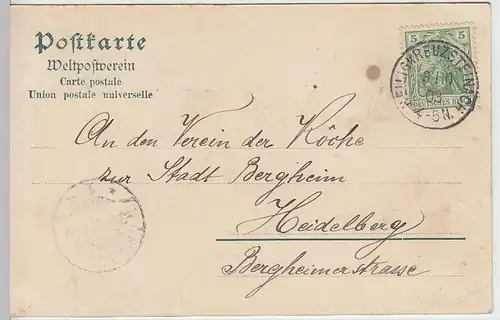 Postkarte
Weltpostverein
Carte postale
Union postale universelle
5 5
HEILIGKREUZSTEINACH
4-5N.
An den Verein der Köche
zur Stadt Bergheim
Heidelberg
Bergheimerstrasse